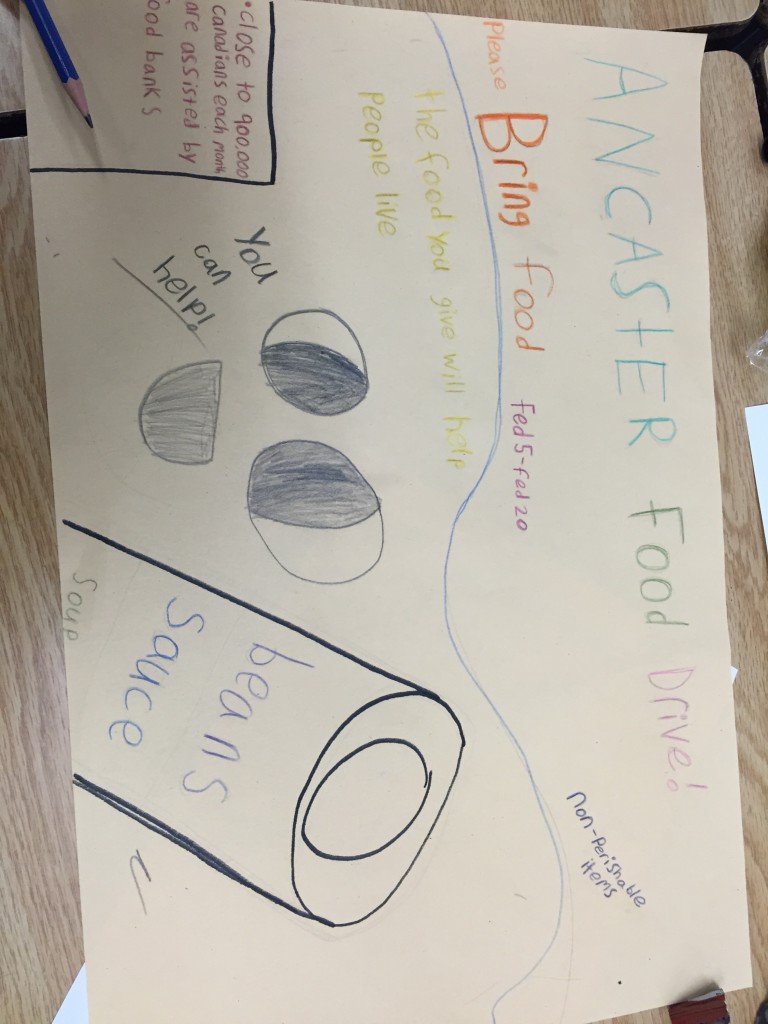 ANCASTER Food Drive!
Please Bring food Fed 5-fed 20
non-Perishable
items
the food you give will help
people live
•close to 900,000
canadians each month
are assisted by
food banks
You
can
help!
beans
sauce
soup